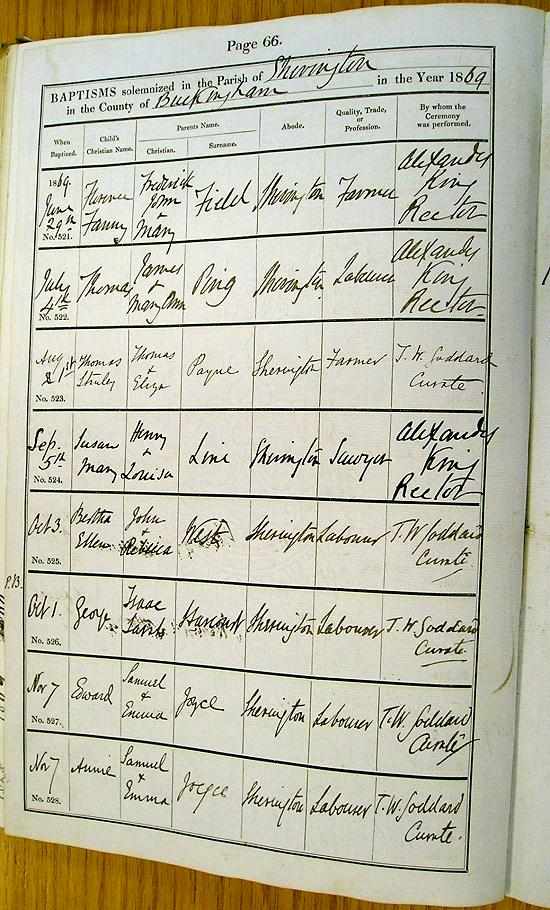 Page 66.
BAPTISMS solemnized in the Parish of Sherington
in the County of Buckingham in the Year 1869
When Baptized. Child's Christian Name. Parents Name. Christian. Surname. Abode. Quality, Trade, or Profession. By whom the Ceremony was performed.
1869. June 29th No. 521. Florence Fanny Frederick John & Mary Field Sherington Farmer Alexander King Rector
July 4th No. 522. Thomas James & Mary Ann Ping Sherington Labourer Alexander King Rector
Aug 1st No. 523. Thomas Thomas & Eliza Payne Sherington Farmer T. W. Goddard Curate
Sep. 5th No. 524. Susan Mary Henry & Louisa Line Sherington Sawyer Alexander King Rector
Oct 3. No. 525. Bertha Ellen John & Rebecca West Sherington Labourer T. W. Goddard Curate
P.B.
Oct 1. No. 526. George Isaac Harcourt Sherington Labourer T. W. Goddard Curate
Nov 7 No. 527. Edward Samuel & Emma Joyce Sherington Labourer T. W. Goddard Curate
Nov 7 No. 528. Annie Samuel & Emma Joyce Sherington Labourer T. W. Goddard Curate.